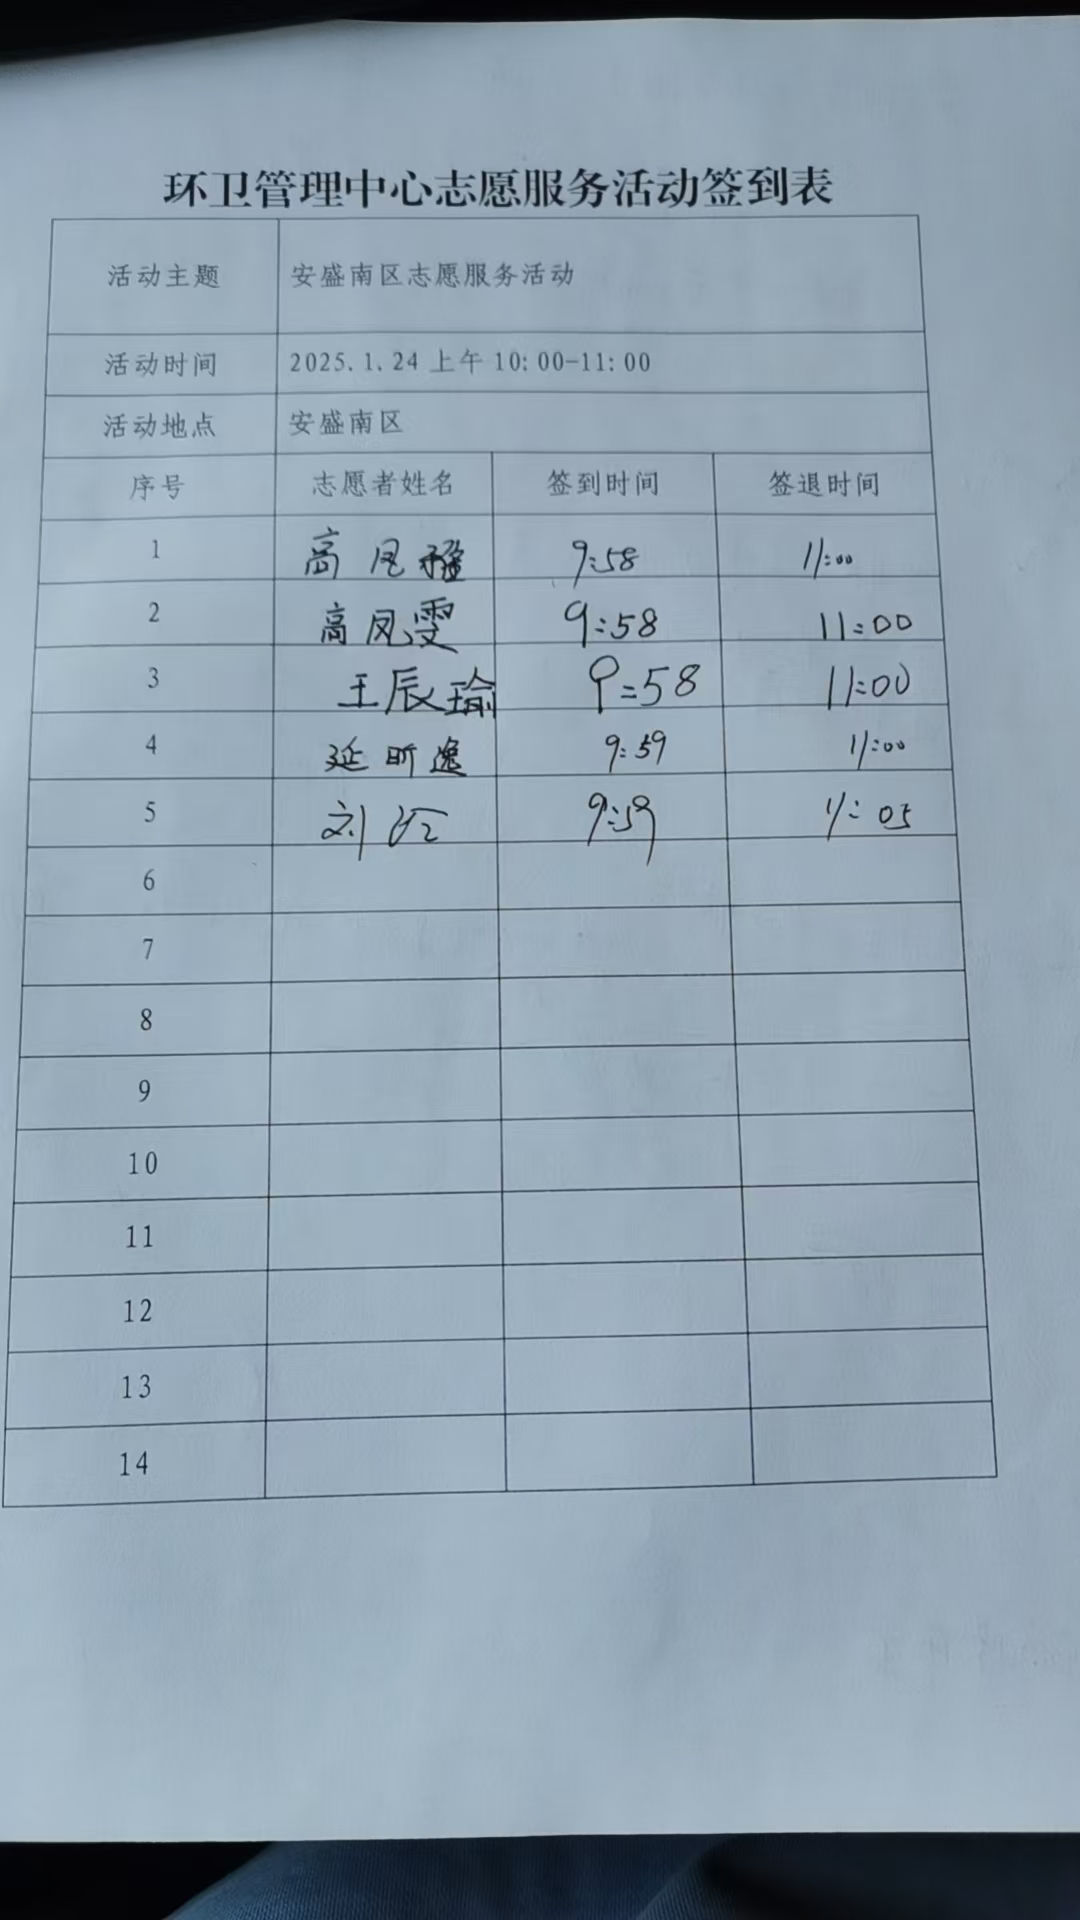 环卫管理中心志愿服务活动签到表
活动主题 安盛南区志愿服务活动
活动时间 2025.1.24 上午 10:00-11:00
活动地点 安盛南区
序号 志愿者姓名 签到时间 签退时间
1 高凤雅 9:58 11:00
2 高凤雯 9:58 11:00
3 王辰瑜 9:58 11:00
4 延昕逸 9:59 11:00
5 刘 9:59 11:05
6
7
8
9
10
11
12
13
14